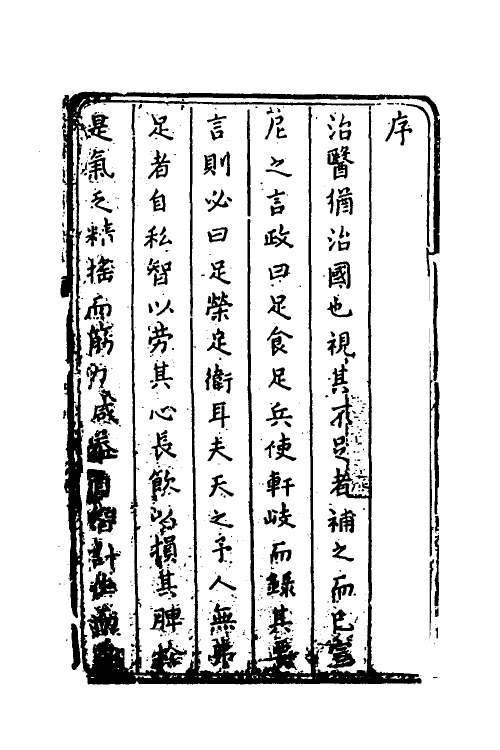 序
治醫猶治國也視其不足者補之而已
尼之言政曰足食足兵使軒岐而錄其要
言則必曰足榮足衛耳夫天之予人無
足者自私智以勞其心長飲以損其脾
是氣乏精搖而筋力咸計